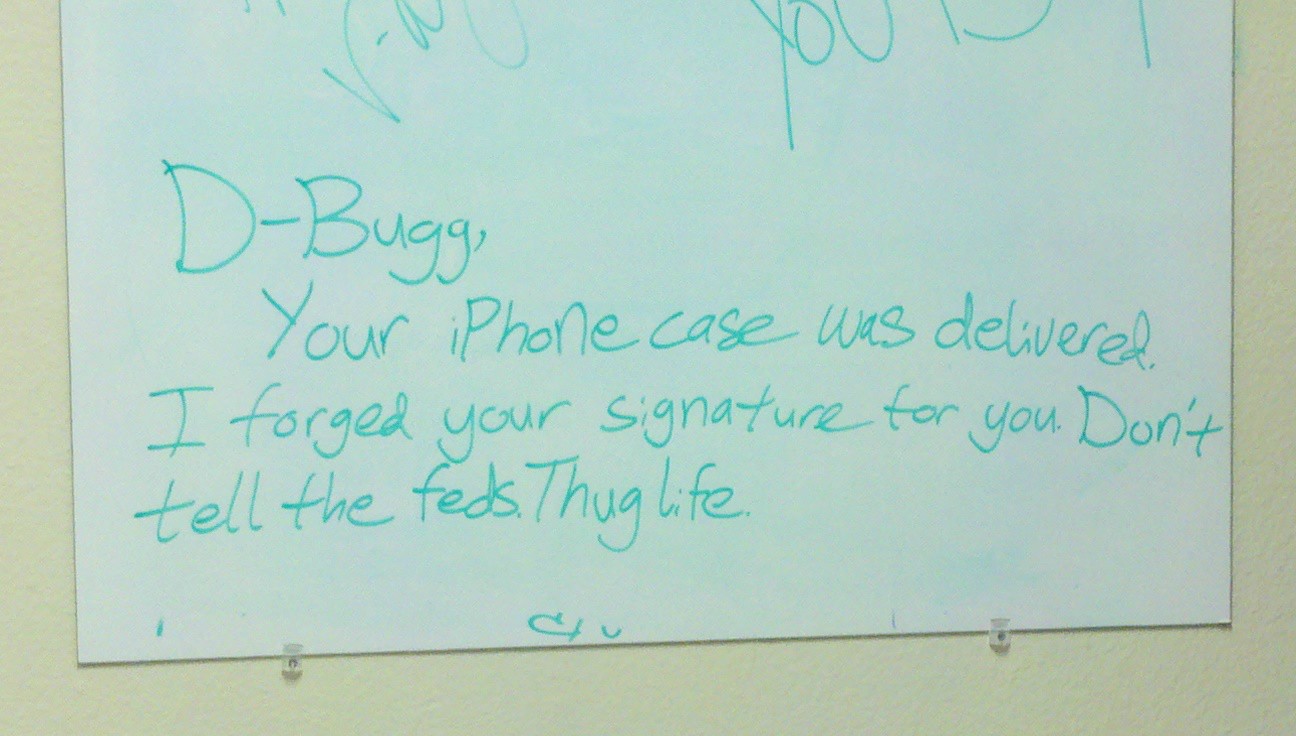 you
D-Bugg,
Your iPhone case was delivered.
I forged your signature for you. Don't
tell the feds. Thug life.